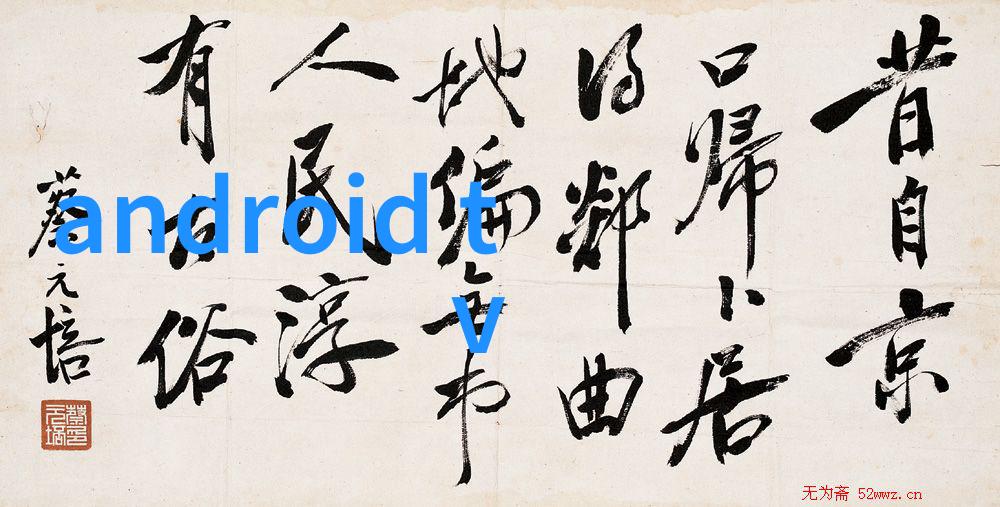 昔自京
口歸卜居
得鄰曲
地偏無市
人民淳
有古俗
蔡元培
android t
v
无为斋 52wwz.cn